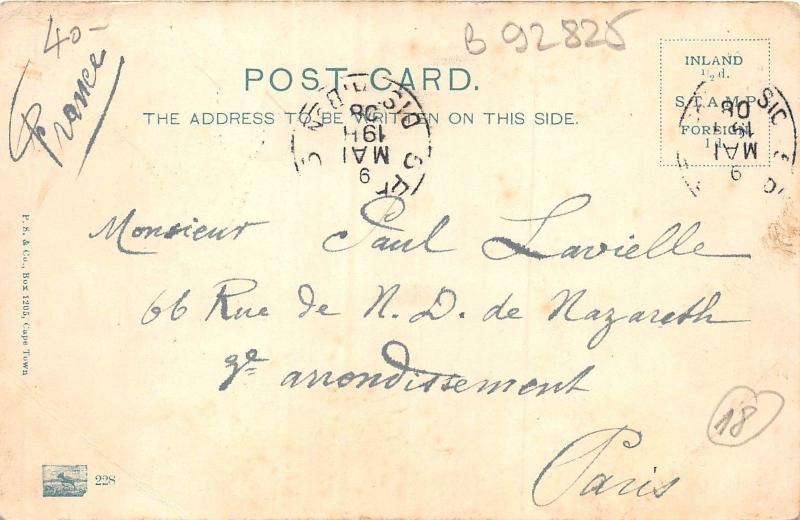 40-
France
B 92825
POST CARD.
THE ADDRESS TO BE WRITTEN ON THIS SIDE.
INLAND
½ d.
STAMP
FOREIGN
1 d.
19H
9 MAI
08
9 MAI
08
Monsieur Paul Lavielle
66 Rue de N. D. de Nazareth
3e arrondissement
Paris
18
P. S. & Co., Box 1205, Cape Town
228